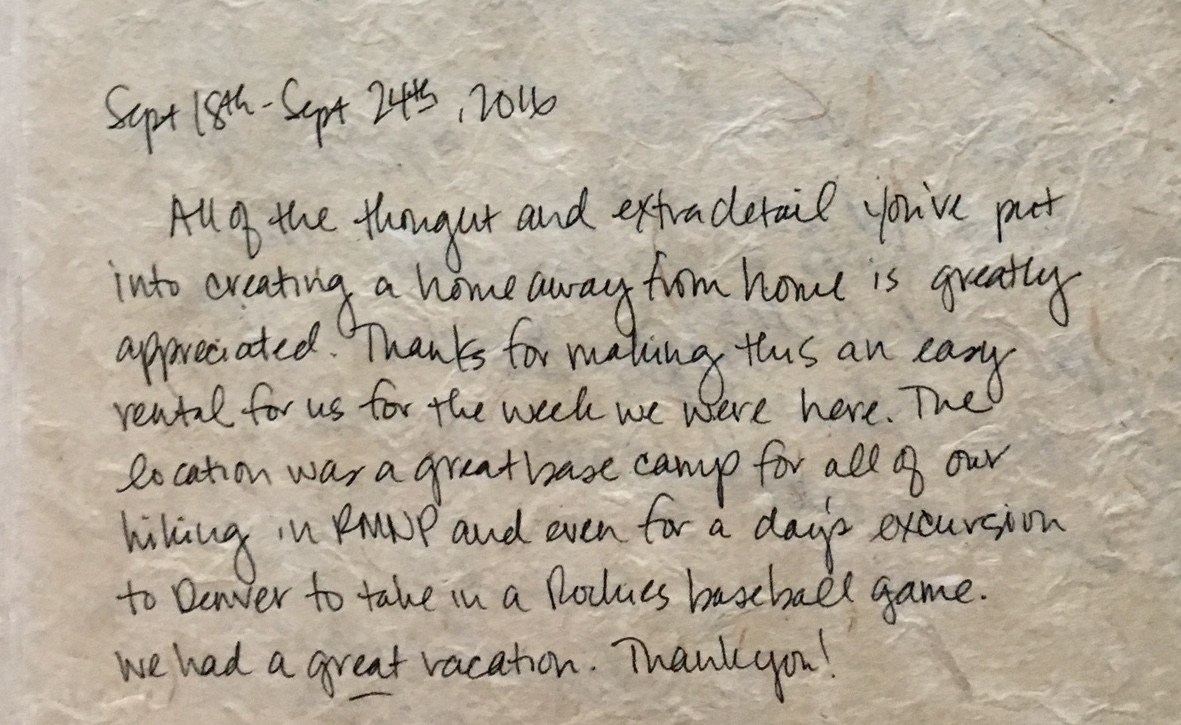 Sept 18th - Sept 24th, 2016
All of the thougut and extra detail you've put
into creating a home away from home is greatly
appreciated. Thanks for making this an easy
rental for us for the week we were here. The
location was a great base camp for all of our
hiking in RMNP and even for a day's excursion
to Denver to take in a Rockies baseball game.
we had a great vacation. Thank you!